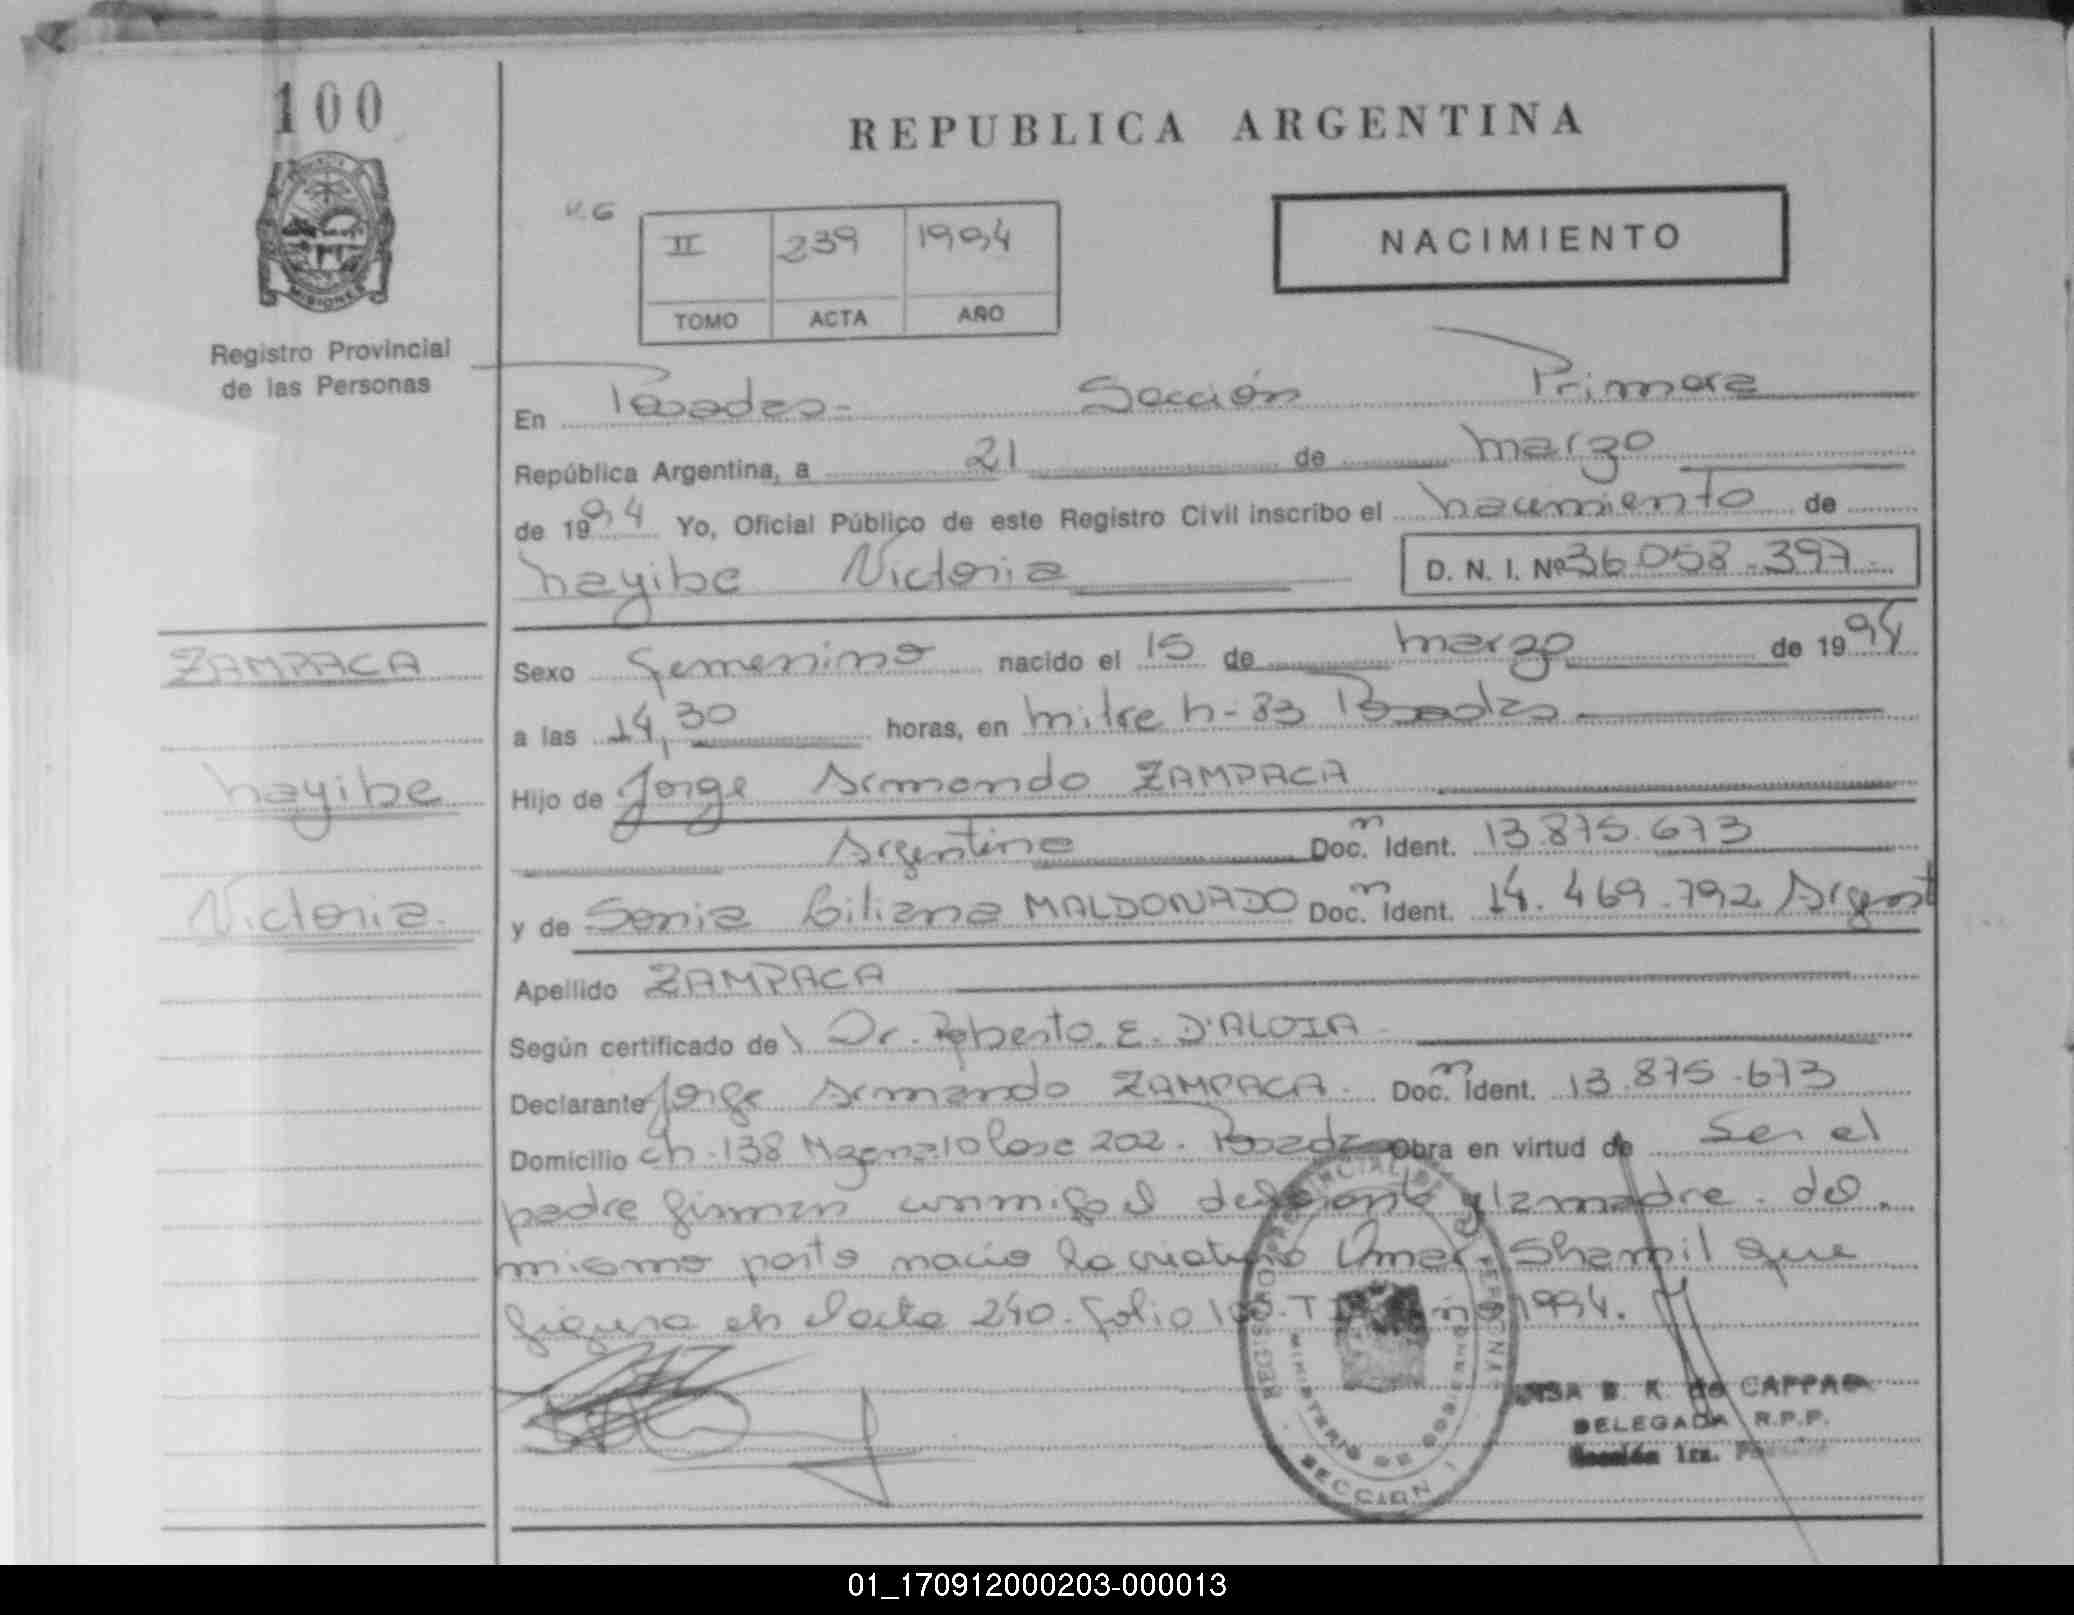 100
REPUBLICA ARGENTINA
II 239 1994
TOMO ACTA AÑO
NACIMIENTO
MISIONES
Registro Provincial
de las Personas
En Posadas - Sección Primera
República Argentina, a 21 de marzo
de 1994 Yo, Oficial Público de este Registro Civil inscribo el nacimiento de
Nayibe Victoria D. N. I. Nº 36.058.397.-
ZAMPACA
Sexo femenino nacido el 15 de marzo de 1994
a las 14,30 horas, en Mitre N-83 Posadas
Nayibe
Hijo de Jorge Armando ZAMPACA
Argentino Doc. Ident. 13.875.673
Victoria.
y de Sonia Liliana MALDONADO Doc. Ident. 14.469.792 Argent
Apellido ZAMPACA
Según certificado del Dr. Roberto E. D'ALOIA
Declarante Jorge Armando ZAMPACA. Doc. Ident. 13.875.673
Domicilio Ch. 138 202. Posadas Obra en virtud de Ser el
padre firman conmigo el declarante y la madre. del
mismo parto nacio la criatura Omar Shamil que
figura en el acta 240. folio 100. T II año 1994.
B. K. de CAPPA
DELEGADA R.P.P.
Sección 1ra.
MINISTERIO DE GOBIERNO
SECCION 1
01_170912000203-000013